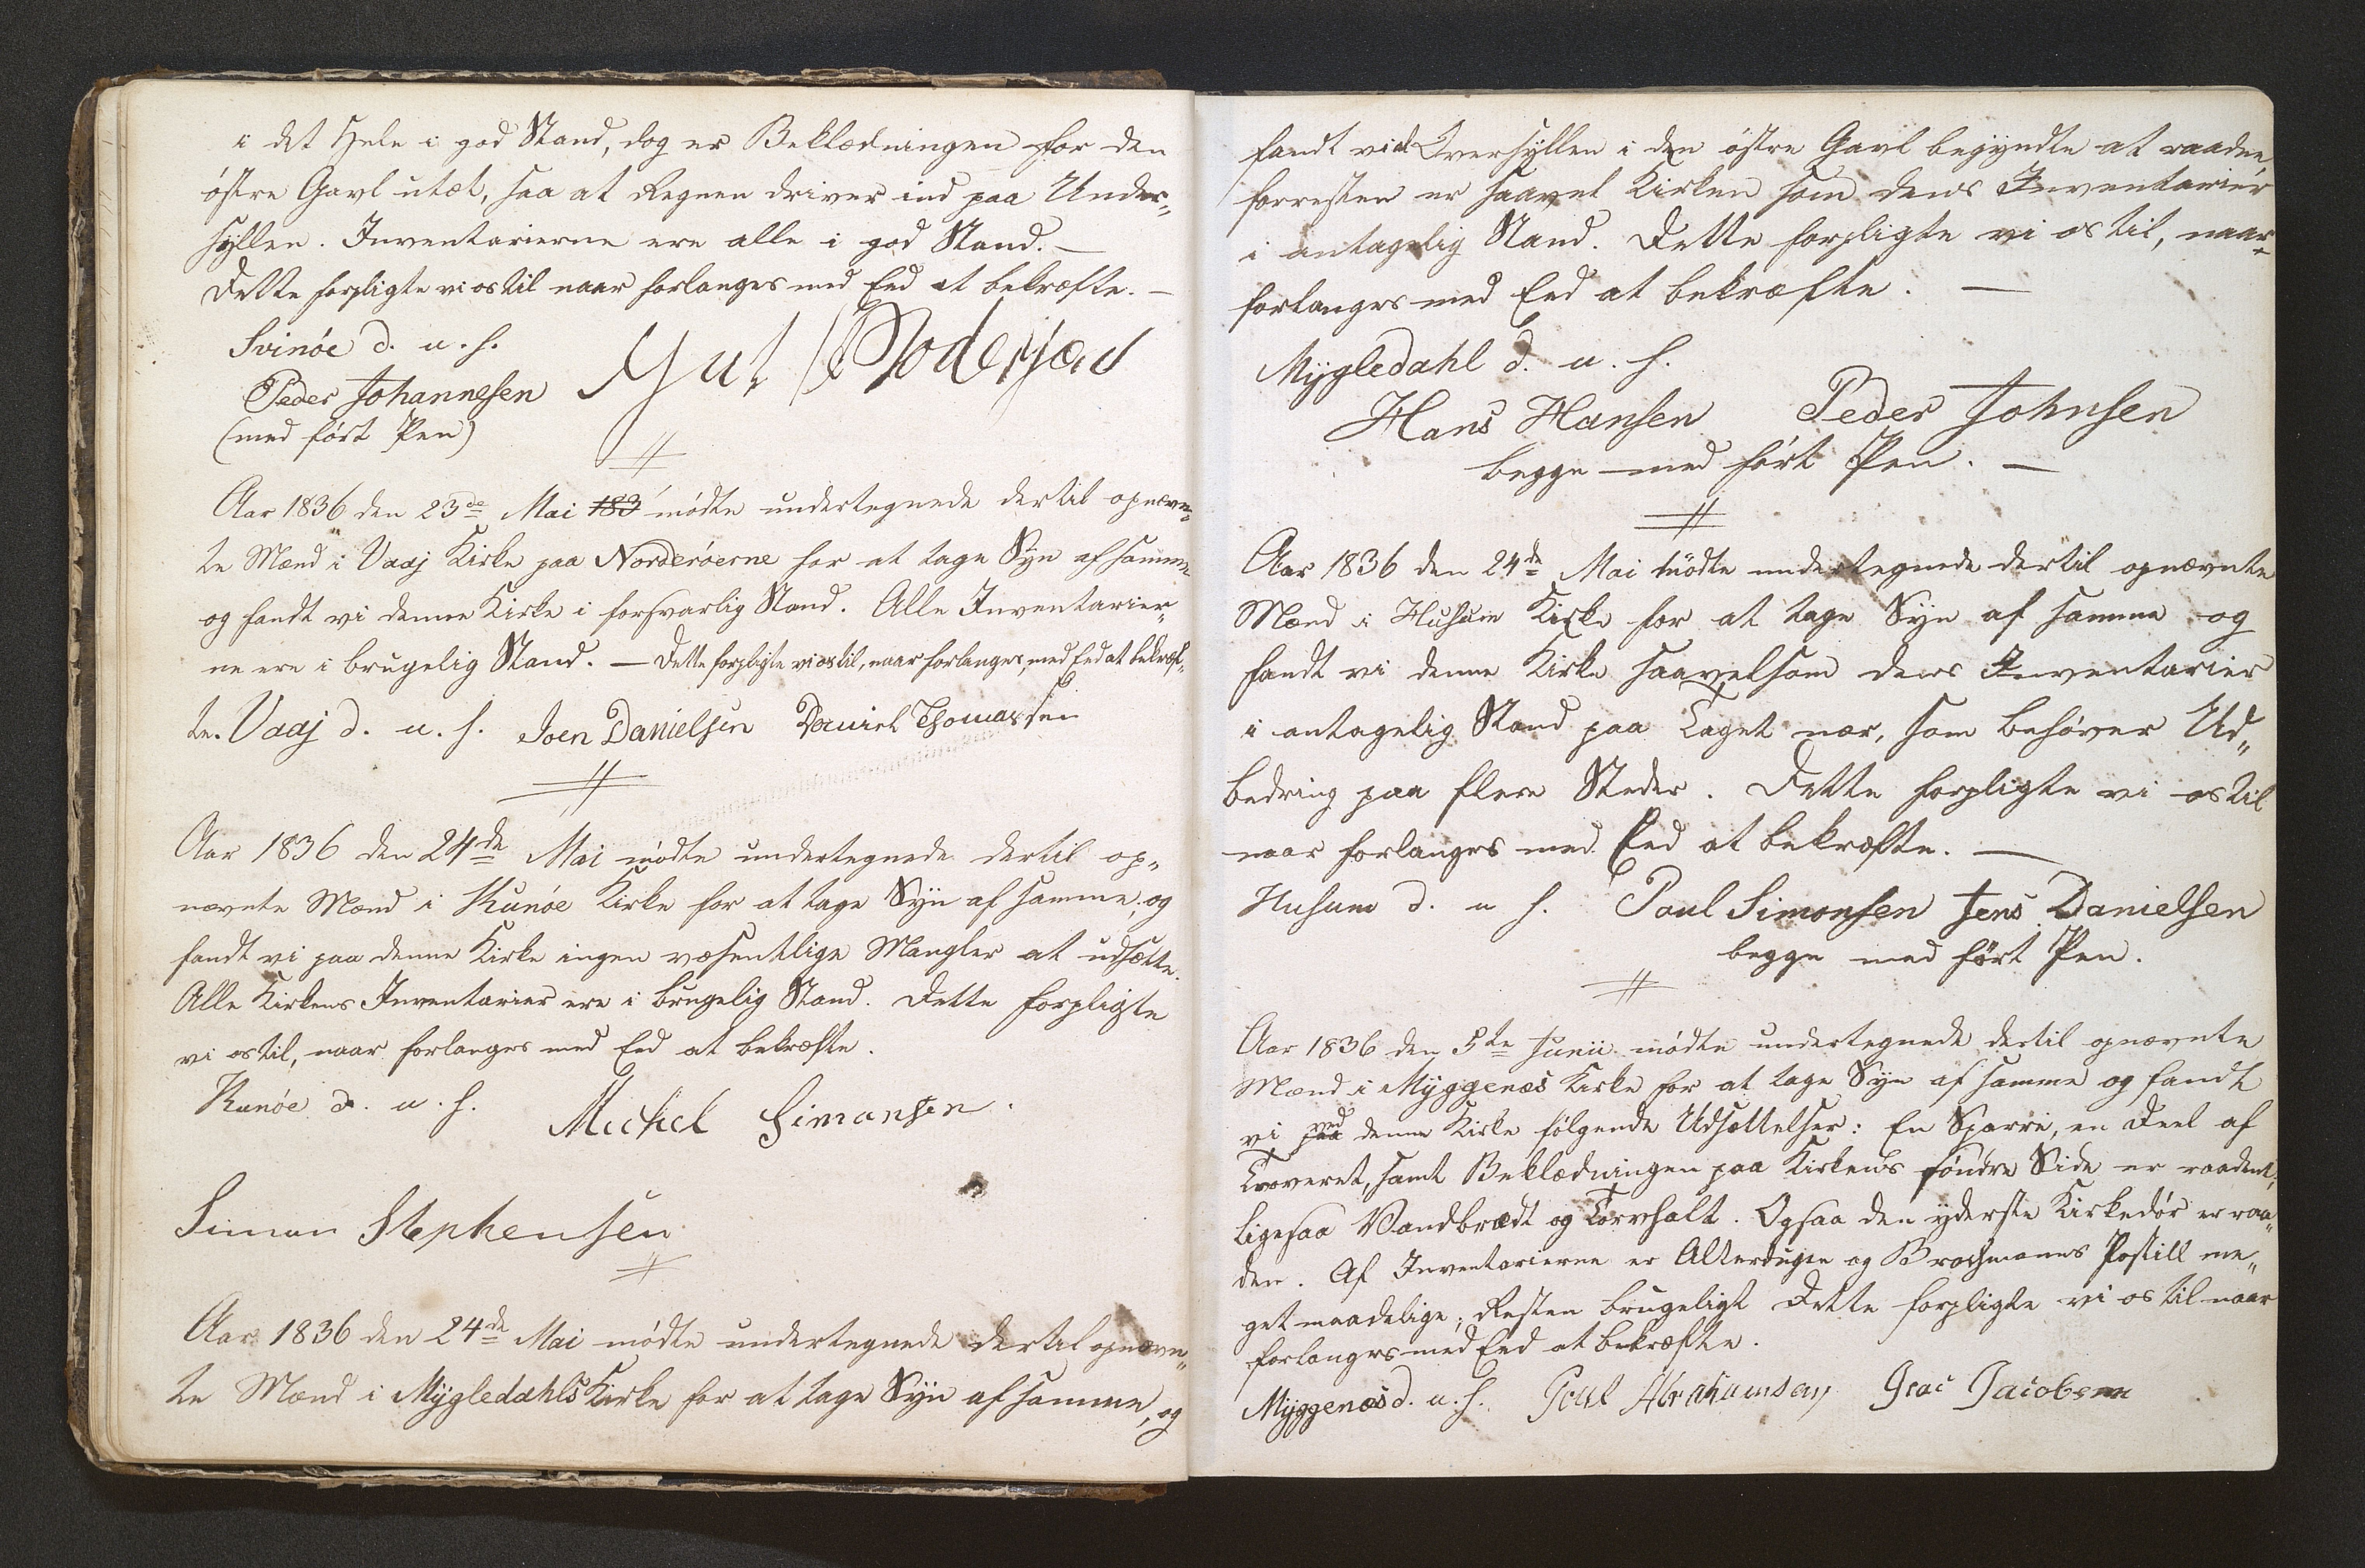 i det Hele i god Stand, dog er Beklædningen for den
østre Gavl utæt, saa at Regnen driver ind paa Under„
syllen. Inventarierne ere alle i god Stand. —
Dette forpligte vi os til naar forlanges med Eed at bekræfte. —
Svinöe d. u. s.
Peder Johannesen
(med ført Pen)
Aar 1836 den 23de Mai 183 mødte undertegnede dertil opnævn„
te Mænd i Vaaj Kirke paa Norderöerne for at tage Syn af samme
og fandt vi denne Kirke i forsvarlig Stand. Alle Inventarier„
ne ere i brugelig Stand. — Dette forpligte vi os til, naar forlanges, med Eed at bekræf„
te. Vaaj d. u. s. Joen Danielsen Daniel Thomassen
Aar 1836 den 24de Mai mødte undertegnede dertil op„
nævnte Mænd i Kunöe Kirke for at tage Syn af samme, og
fandt vi paa denne Kirke ingen væsentlige Mangler at udsætte.
Alle Kirkens Inventarier ere i brugelig Stand. Dette forpligte
vi os til, naar forlanges med Eed at bekræfte.
Kunöe d. u. s. Michel Simonsen.
Simon Stephensen
Aar 1836 den 24de Mai mødte undertegnede dertil opnævn„
te Mænd i Mygledahls Kirke for at tage Syn af samme, og
fandt vi at Oversyllen i den østre Gavl begyndte at raadne
forresten er saavel Kirken som dens Inventarier
i antagelig Stand. Dette forpligte vi os til, naar
forlanges med Eed at bekræfte. —
Mygledahl d. u. s.
Hans Hansen Peder Johnsen
begge med ført Pen. —
Aar 1836 den 24de Mai mødte undertegnede dertil opnævnte
Mænd i Husum Kirke for at tage Syn af samme og
fandt vi denne Kirke saavelsom dens Inventarier
i antagelig Stand paa Taget nær, som behøver Ud„
bedring paa flere Steder. Dette forpligte vi os til
naar forlanges med Eed at bekræfte. —
Husum d. u s. Poul Simonsen Jens Danielsen
begge med ført Pen.
Aar 1836 den 5te Junii mødte undertegnede dertil opnævnte
Mænd i Myggenæs Kirke for at tage Syn af samme og fandt
vi paa ved denne Kirke følgende Udsættelser: En Sparre, en Deel af
Troveret, samt Beklædningen paa Kirkens søndre Side er raadent,
ligesaa Vandbrædt og Torvhalt. Ogsaa den yderste Kirkedør er raa„
den. Af Inventarierne er Alterdugen og Brochmanns Postill me„
get maadelige; Resten brugeligt Dette forpligte vi os til naar
forlanges med Eed at bekræfte.
Myggenæs d. u. s. Poul Abrahamsen Isac Jacobsen